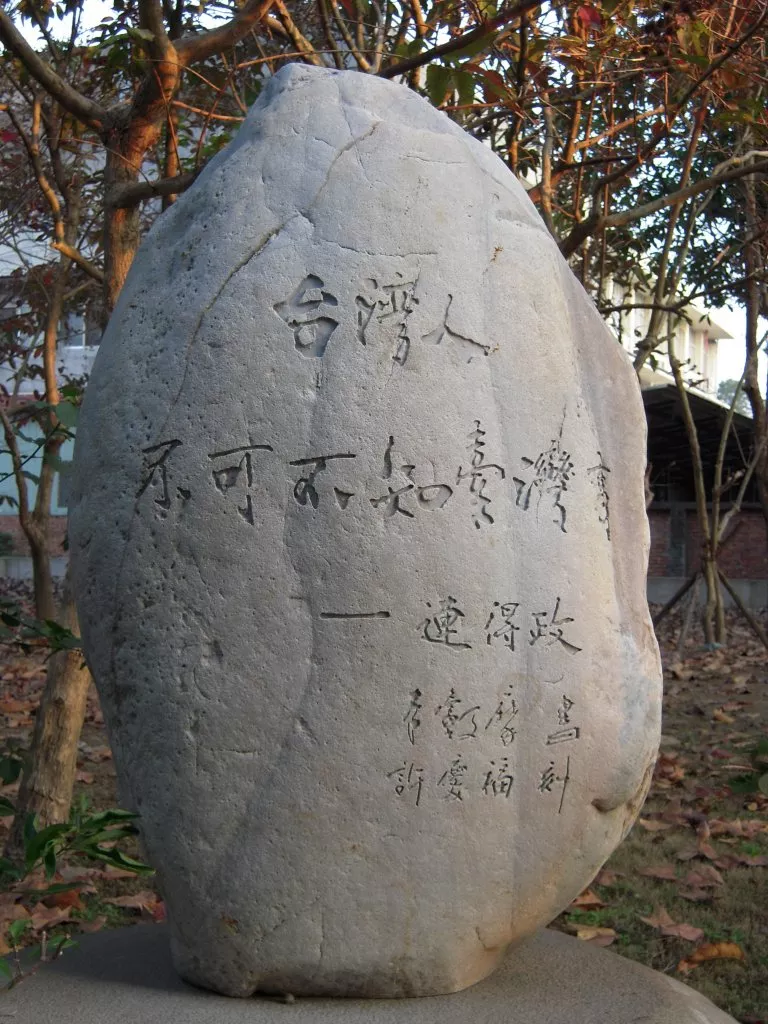 台灣人
不可不知臺灣事
— 連得政
書
許慶福 刻